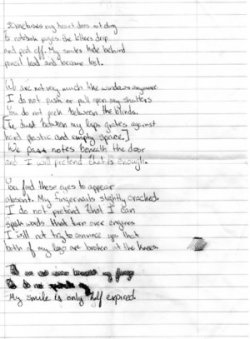 Sometimes my heart does not cling
to notebook pages the letters drip
and fall off. My smiles hide behind
pencil lead and become lost.
We are not very much like windows anymore
I do not push or pull open my shutters
You do not peek between the blinds.
[The dust between my lips gathers against
hard plastic and simply ignore.]
We pass notes beneath the door
and I will pretend that is enough.
You find these eyes to appear
absent. My fingernails slightly cracked
I do not pretend that I can
spark words that turn over engines
I will not try to convince you that
both of my legs are broken at the knees.
My smile is only half expired